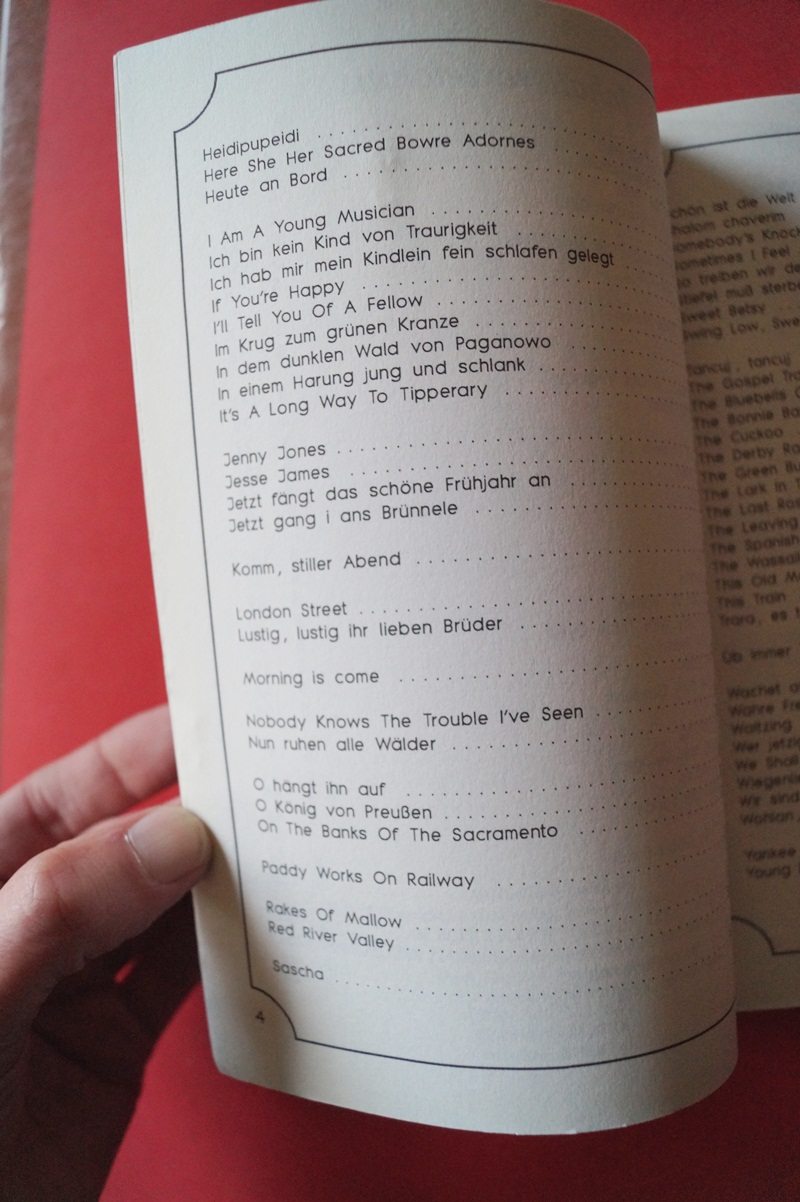 Heidipupeidi
Here She Her Sacred Bowre Adornes
Heute an Bord
I Am A Young Musician
Ich bin kein Kind von Traurigkeit
Ich hab mir mein Kindlein fein schlafen gelegt
If You're Happy
I'll Tell You Of A Fellow
Im Krug zum grünen Kranze
In dem dunklen Wald von Paganowo
In einem Harung jung und schlank
It's A Long Way To Tipperary
Jenny Jones
Jesse James
Jetzt fängt das schöne Frühjahr an
Jetzt gang i ans Brünnele
Komm, stiller Abend
London Street
Lustig, lustig ihr lieben Brüder
Morning is come
Nobody Knows The Trouble I've Seen
Nun ruhen alle Wälder
O hängt ihn auf
O König von Preußen
On The Banks Of The Sacramento
Paddy Works On Railway
Rakes Of Mallow
Red River Valley
Sascha
4
ist die Welt
chaverim
I Feel
treiben wir
muß
Sweet Betsy
Swing Low,
Tancuj, tancuj
The Gospel
The Bluebells
The Bonnie
The Cuckoo
The Derby
The Green
The Lark In
The Last
The Leaving
The Spanish
The
This Old
This Train
Trara, es
Üb immer
Wachet
Wahre
Waltzing
Wer
We
Wir sind
Yankee
Young